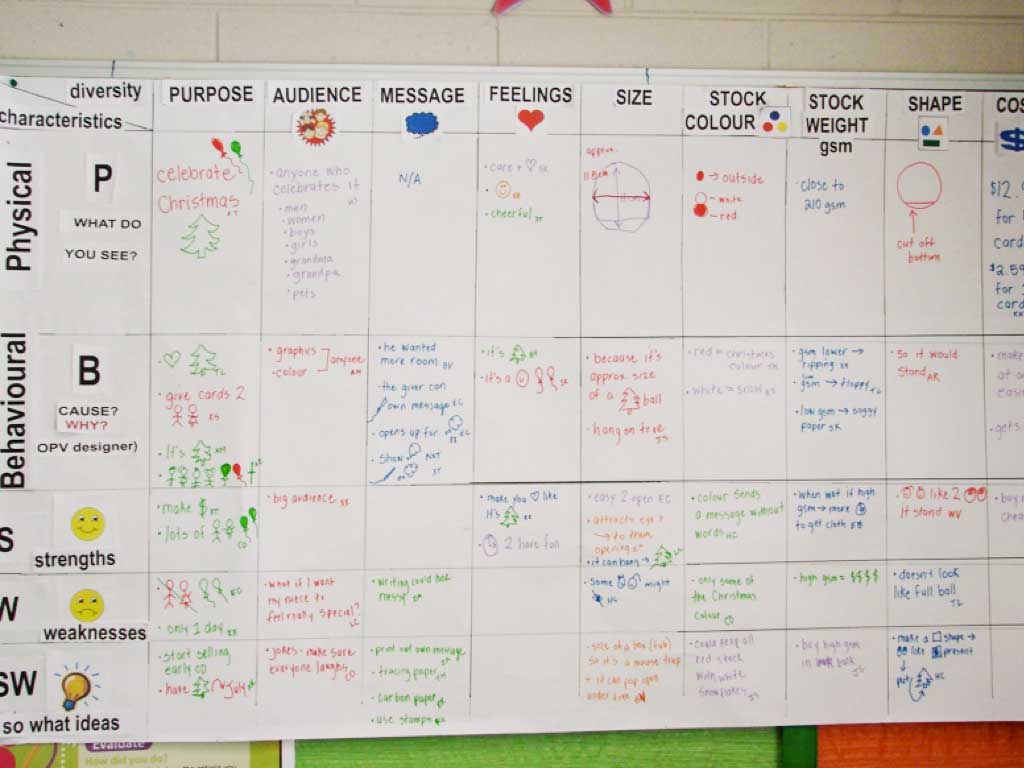 diversity
characteristics
PURPOSE
AUDIENCE
MESSAGE
FEELINGS
SIZE
STOCK
COLOUR
STOCK
WEIGHT
gsm
SHAPE
COS
$
Physical
P
WHAT DO
YOU SEE?
celebrate
Christmas
• anyone who
celebrates it
• men
• women
• boys
• girls
• grandma
• grandpa
• pets
N/A
• care +
• cheerful
approx.
→ outside
– white
– red
• close to
210 gsm
cut off
bottom
$12.
for
card
$2.59
for
card
Behavioural
B
CAUSE?
WHY?
OPV designer)
• give cards 2
• It's
• graphics
• colour
anyone
• he wanted
more room
• the giver can
own message
• opens up for
• show NOT
• it's
• it's a
• because it's
approx size
of a ball
• hang on tree
• red = christmas
colour
• white = snow
• gsm lower →
ripping
gsm → floppy
• low gsm → soggy
paper
• So it would
stand
• make
at
easi
• gets
S
strengths
• make $
• lots of
• big audience
• make you like
it's
2 have fun
• easy 2 open
• attracts eye
→ to them
opening
• it can hang →
• colour sends
a message without
words
• when wet if high
gsm → more
to get cloth
like 2
it stand
• buy
chea
W
weaknesses
• only 1 day
• what if I want
my niece to
feel really special?
• Writing could be
messy
• some might
• only some of
the Christmas
colour
• high gsm = $$$$
• doesn't look
like full ball
SW
so what ideas
• start selling
early
• have July
• jokes - make sure
everyone laughs
• print out own message
• tracing paper
• carbon paper
• use stamps
so it's a mouse trap
+ it can pop open
under
• could keep all
red stock
with white
snowflakes
• buy high gsm
in bulk
• make a shape →
like present
put
Evaluate
How did you do?